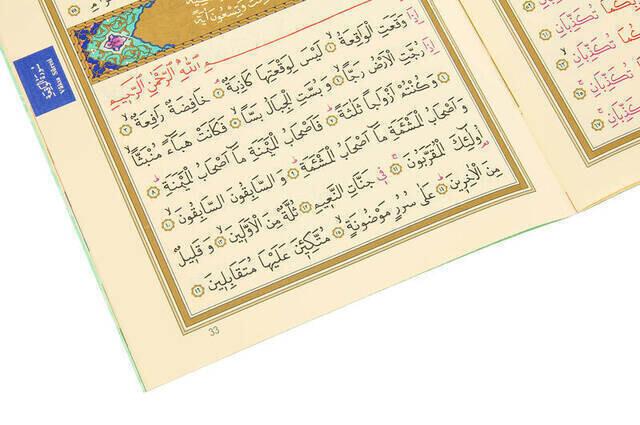 وَتِسْعُونَ آيَةً
سورة الواقعة
Vâkıa Sûresi
بِسْمِ اللّٰهِ الرَّحْمٰنِ الرَّحِيمِ
اِذَا وَقَعَتِ الْوَاقِعَةُ ﴿١﴾ لَيْسَ لِوَقْعَتِهَا كَاذِبَةٌ ﴿٢﴾ خَافِضَةٌ رَافِعَةٌ ﴿٣﴾
اِذَا رُجَّتِ الْاَرْضُ رَجًّا ﴿٤﴾ وَبُسَّتِ الْجِبَالُ بَسًّا ﴿٥﴾ فَكَانَتْ هَبَٓاءً مُنْبَثًّا
﴿٦﴾ وَكُنْتُمْ اَزْوَاجًا ثَلٰثَةً ﴿٧﴾ فَاَصْحَابُ الْمَيْمَنَةِ مَٓا اَصْحَابُ الْمَيْمَنَةِ ﴿٨﴾
وَاَصْحَابُ الْمَشْـَٔمَةِ مَٓا اَصْحَابُ الْمَشْـَٔمَةِ ﴿٩﴾ وَالسَّابِقُونَ السَّابِقُونَ ﴿١٠﴾
اُولٰٓئِكَ الْمُقَرَّبُونَ ﴿١١﴾ فِي جَنَّاتِ النَّعِيمِ ﴿١٢﴾ ثُلَّةٌ مِنَ الْاَوَّلِينَ ﴿١٣﴾ وَقَلِيلٌ
مِنَ الْاٰخِرِينَ ﴿١٤﴾ عَلٰى سُرُرٍ مَوْضُونَةٍ ﴿١٥﴾ مُتَّكِـِٔينَ عَلَيْهَا مُتَقَابِلِينَ ﴿١٦﴾
33
تُكَذِّبَانِ
تُكَذِّبَانِ
تُكَذِّبَانِ